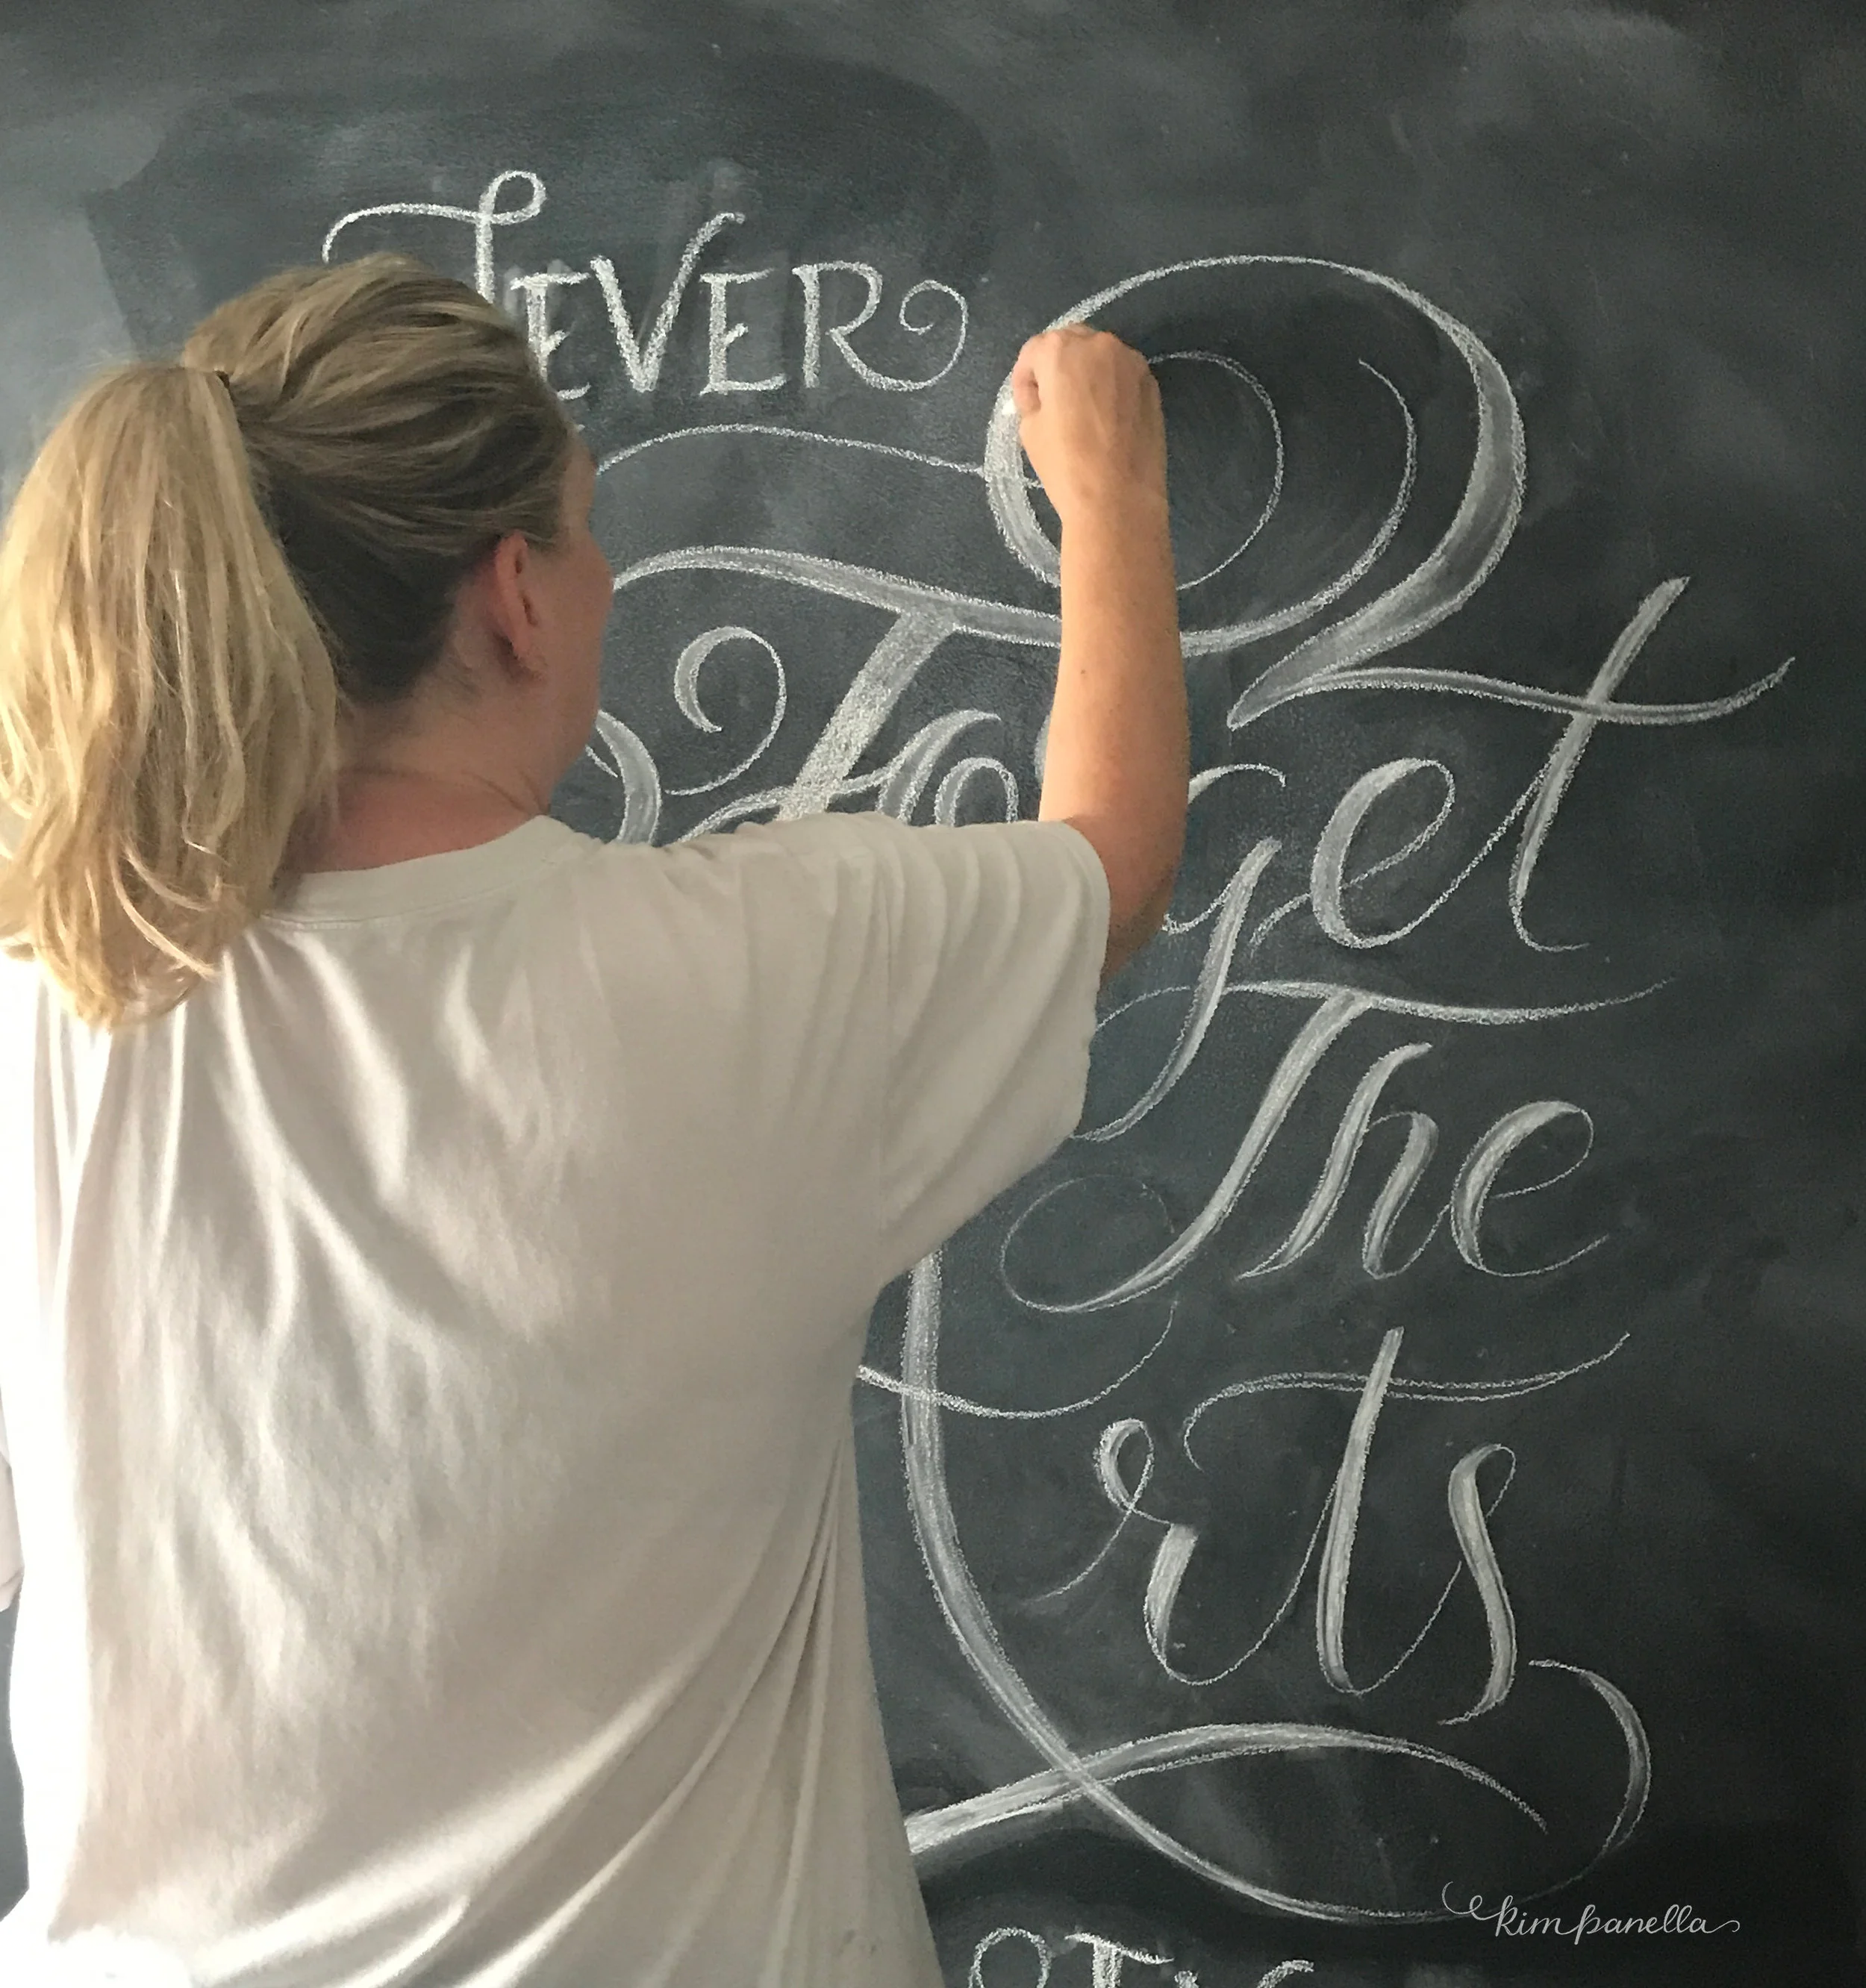 NEVER
Forget
The
rts
kim panella